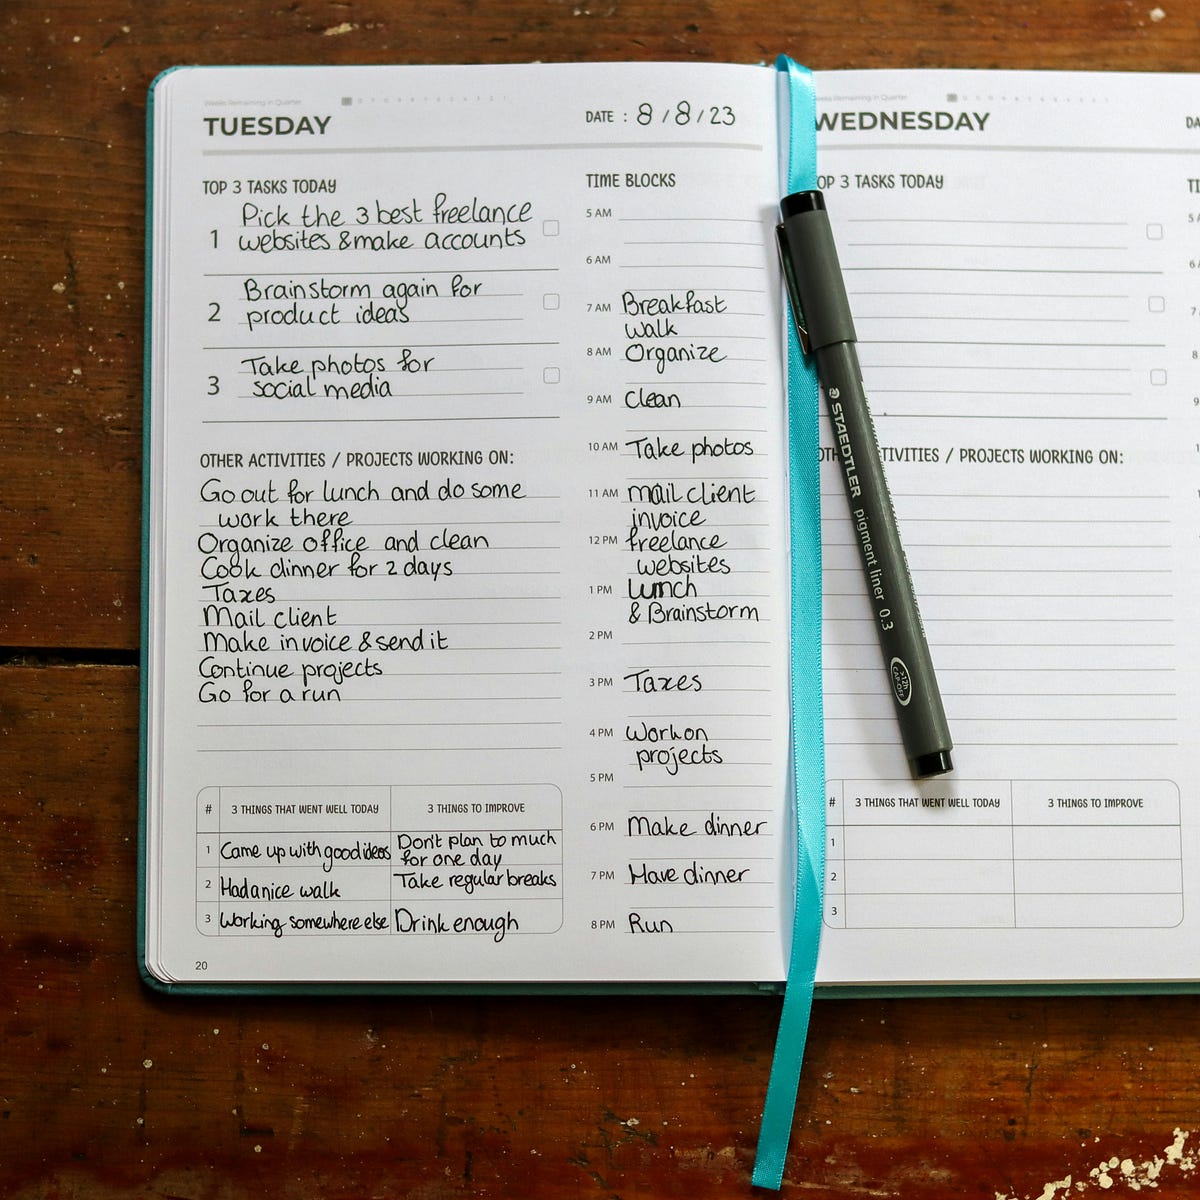 Weeks Remaining in Quarter
TUESDAY
DATE : 8 / 8 / 23
TOP 3 TASKS TODAY
1 Pick the 3 best freelance
websites & make accounts
2 Brainstorm again for
product ideas
3 Take photos for
social media
OTHER ACTIVITIES / PROJECTS WORKING ON:
Go out for lunch and do some
work there
Organize office and clean
Cook dinner for 2 days
Taxes
Mail client
Make invoice & send it
Continue projects
Go for a run
# 3 THINGS THAT WENT WELL TODAY 3 THINGS TO IMPROVE
1 Came up with good ideas Don't plan to much
for one day
2 Had a nice walk Take regular breaks
3 Working somewhere else Drink enough
20
TIME BLOCKS
5 AM
6 AM
7 AM Breakfast
walk
8 AM Organize
9 AM Clean
10 AM Take photos
11 AM Mail client
invoice
12 PM freelance
websites
1 PM Lunch
& Brainstorm
2 PM
3 PM Taxes
4 PM Work on
projects
5 PM
6 PM Make dinner
7 PM Have dinner
8 PM Run
Weeks Remaining in Quarter
WEDNESDAY
DA
TOP 3 TASKS TODAY
TI
5 A
6
7
8
9
1
OTH TIVITIES / PROJECTS WORKING ON:
# 3 THINGS THAT WENT WELL TODAY 3 THINGS TO IMPROVE
1
2
3
STAEDTLER pigment liner 0.3
>12h
CAP-OFF